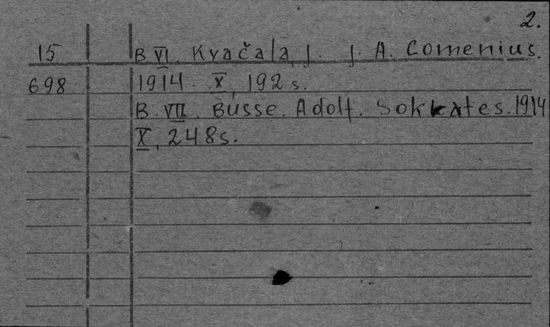 2.
15 B VI. Kvačala, J. J. A. Comenius.
698 1914. X, 192 s.
B. VII. Busse. Adolf. Sokrates. 1914
X, 248 s.